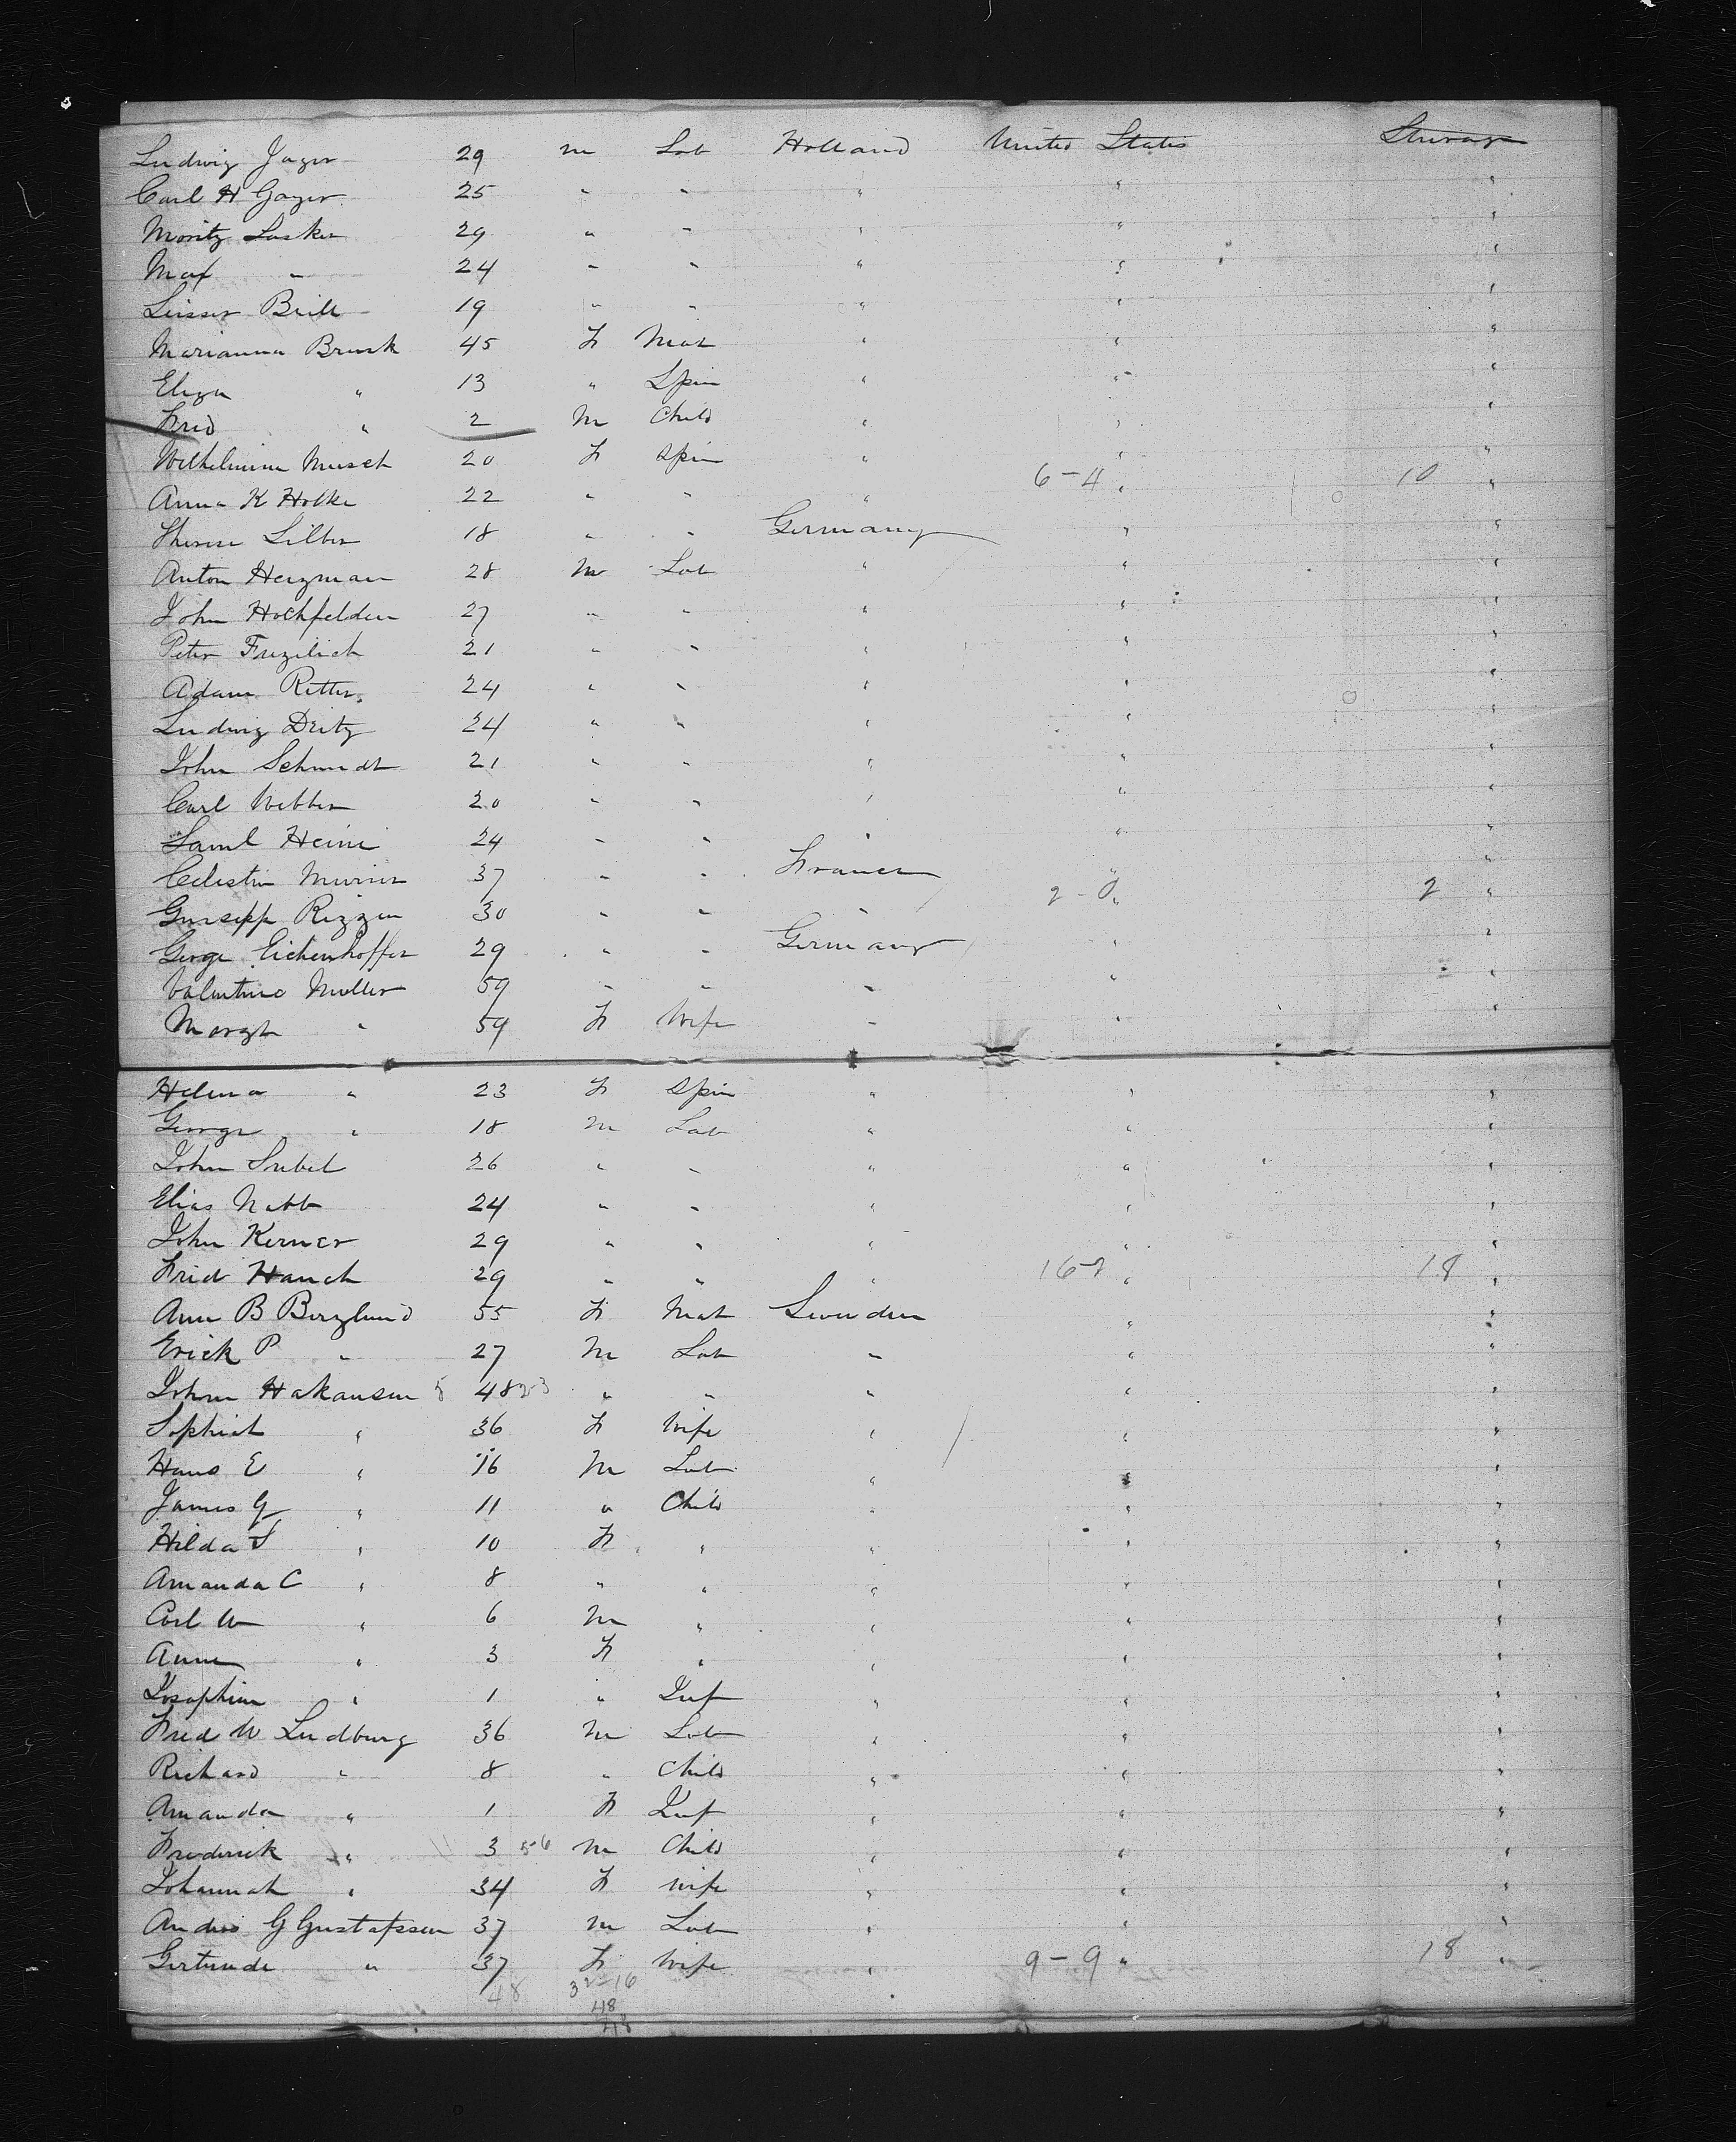 Ludwig Jager 29 m Lab Holland United States Steerage
Carl H Gayer 25 " " " " "
Moritz Lasker 29 " " " " "
Max " 24 " " " " "
Leisser Brill 19 " " " " "
Marianna Brusk 45 F Mat " " "
Eliza " 13 " Spin " " "
Fred " 2 M Child " " "
Wilhelmina Musch 20 F Spin " " "
Anna K Holke 22 " " " 6-4 " 10 "
Therese Silber 18 " " Germany " "
Anton Herzman 28 M Lab " " "
John Hochfelden 27 " " " " "
Peter 21 " " " " "
Adam Ritter 24 " " " " "
Ludwig Deitz 24 " " " " "
John Schmidt 21 " " " " "
Carl Webber 20 " " " " "
Saml Heine 24 " " " " "
Celestin 37 " " France " "
Guisepp Rizzen 30 " " " 2-0 " 2 "
George Eichenhoffer 29 " " Germany " "
Valentine Muller 59 " " " " "
Margt " 59 F Wife " " "
Helena " 23 F Spin " " "
George " 18 M Lab " " "
John Subel 26 " " " " "
Elias Nabb 24 " " " " "
John Kerner 29 " " " " "
Fried Hauch 29 " " " 16-2 " 18 "
Ann B Berglund 55 F Mat Sweden " "
Erick P " 27 M Lab " " "
Johan Hakansen 5 48 23 " " " " "
Sophiah " 36 F Wife " " "
Hans E " 16 M Lab " " "
James G " 11 " Child " " "
Hilda S " 10 F " " " "
Amanda C " 8 " " " " "
Carl W " 6 M " " " "
Anna " 3 F " " " "
Josephine " 1 " Inf " " "
Fred W Ludburg 36 M Lab " " "
Richard " 8 " Child " " "
Amanda " 1 F Inf " " "
Frederick " 11 3 56 M Child " " "
Johannah " 34 F Wife " " "
Andrs G Gustafssen 37 M Lab " " "
Gertrude " 37 F Wife " 9-9 " 18 "
48 32-16
48
48